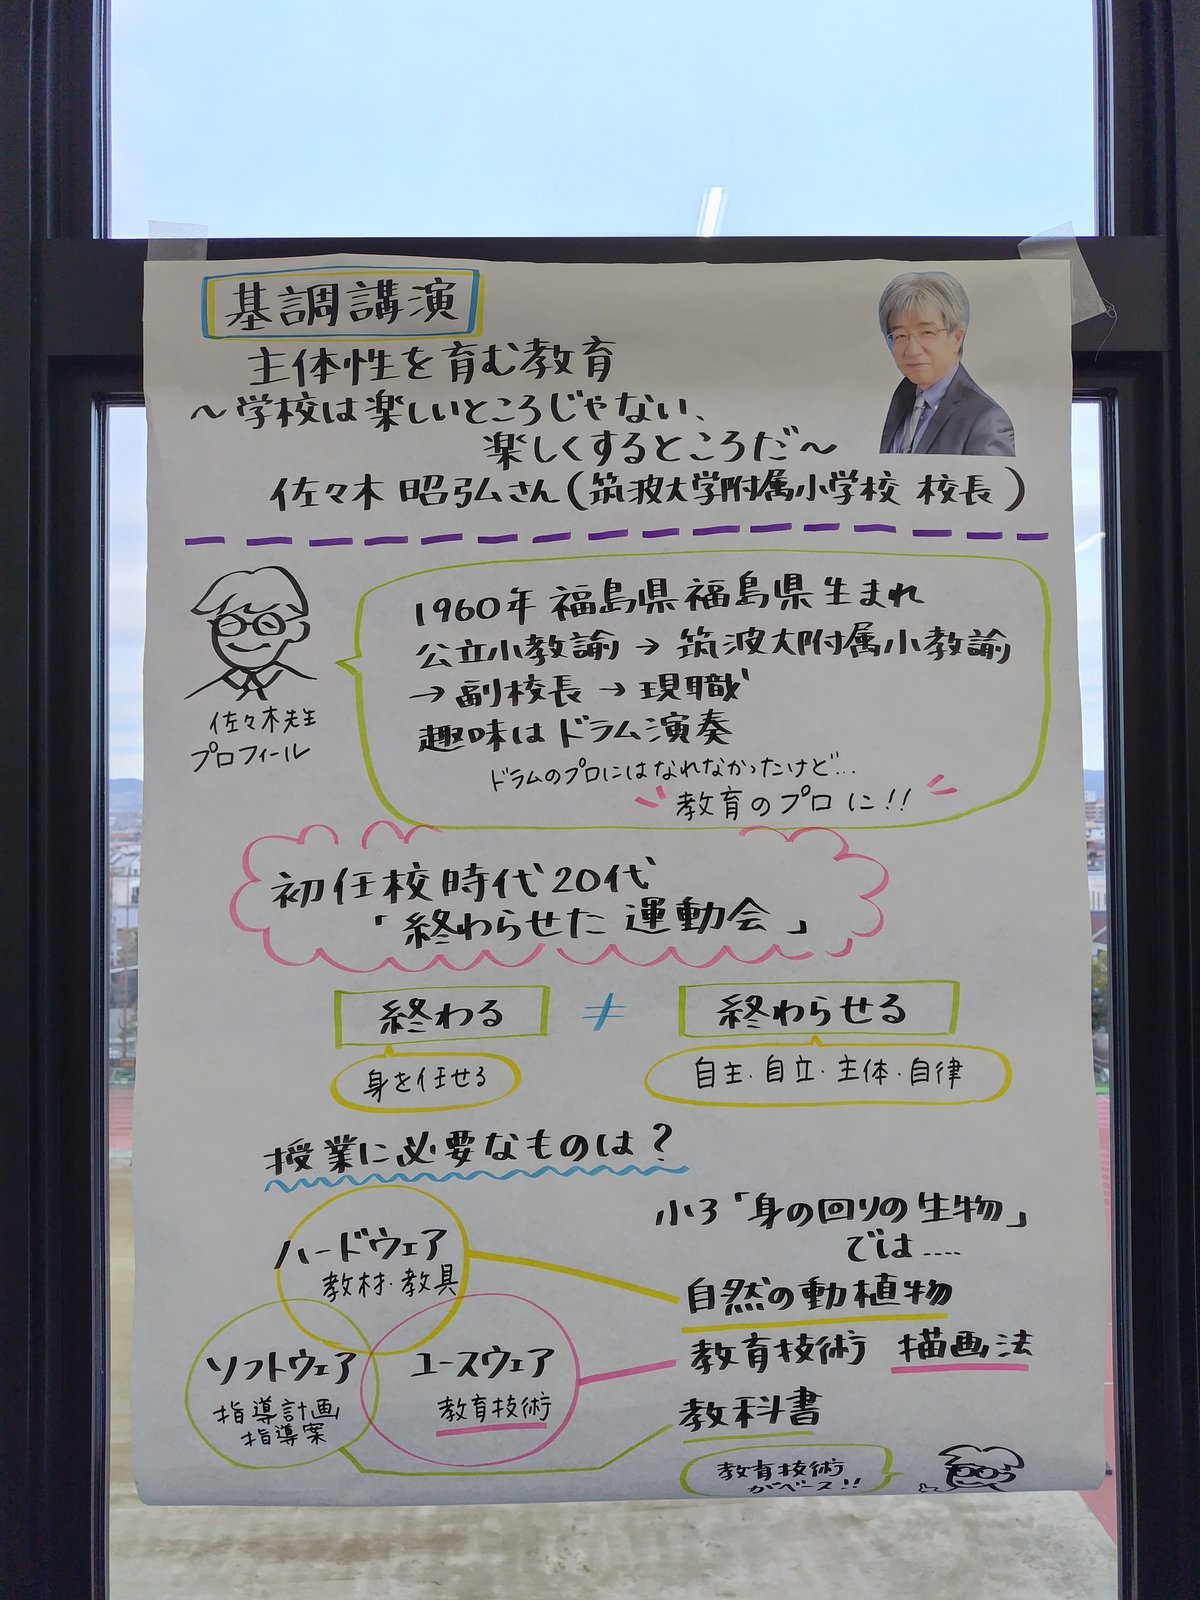 基調講演
主体性を育む教育
～学校は楽しいところじゃない、
楽しくするところだ～
佐々木 昭弘さん(筑波大学附属小学校 校長)
佐々木先生
プロフィール
1960年 福島県福島県生まれ
公立小教諭→筑波大附属小教諭
→副校長→現職
趣味はドラム演奏
ドラムのプロにはなれなかったけど…
教育のプロに!!
初任校時代20代
「終わらせた運動会」
終わる ≠ 終わらせる
身を任せる
自主・自立・主体・自律
授業に必要なものは?
ハードウェア
教材・教具
ソフトウェア
指導計画
指導案
ユースウェア
教育技術
小3「身の回りの生物」
では....
自然の動植物
教育技術 描画法
教科書
教育技術
がベース!!